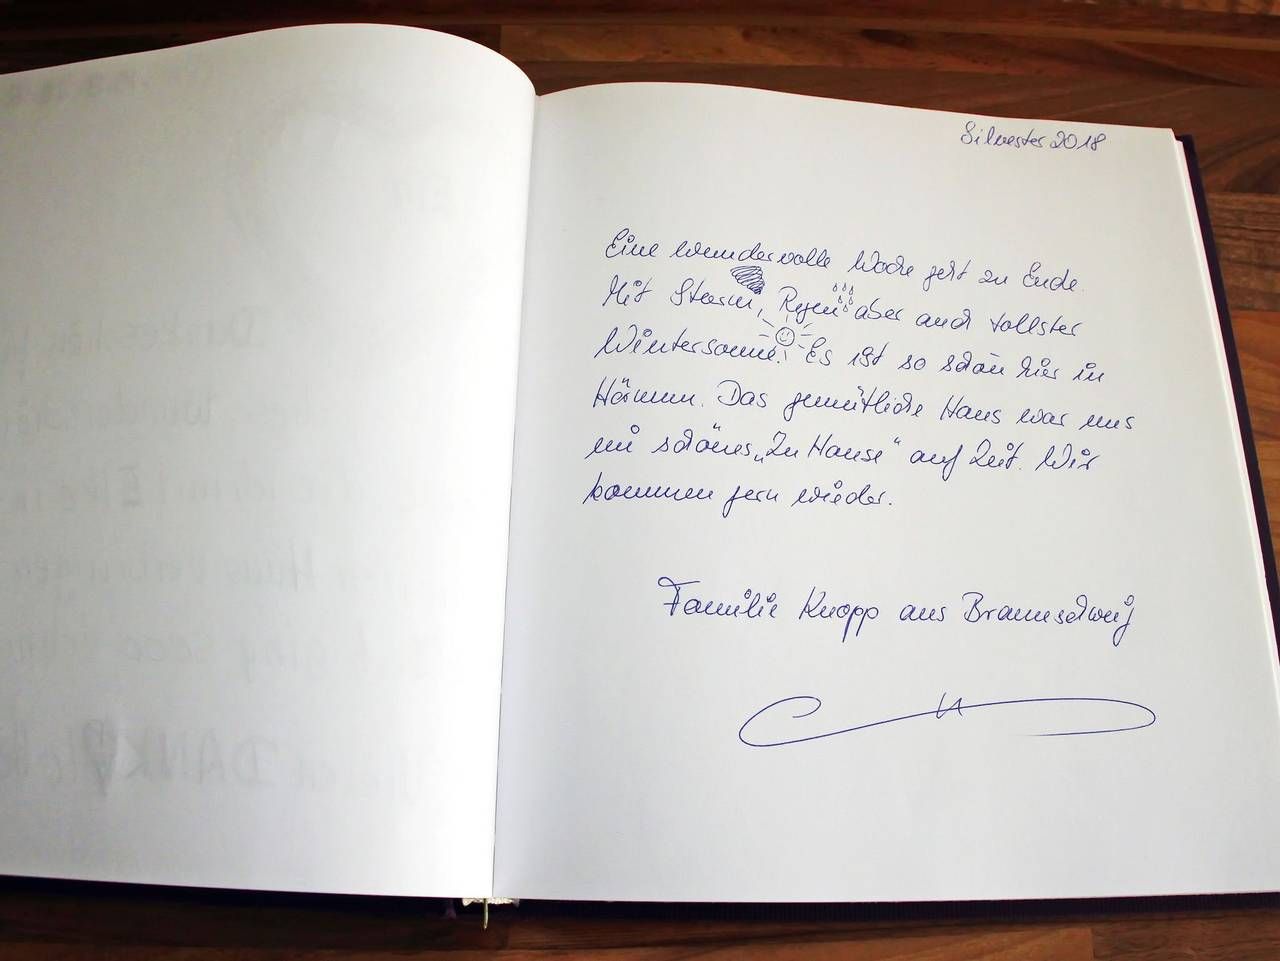 Silvester 2018
Eine wundervolle Woche geht zu Ende.
Mit Sturm, Regen aber auch tollster
Wintersonne. Es ist so schön hier in
Hörnum. Das gemütliche Haus war uns
ein schönes „Zu Hause" auf Zeit. Wir
kommen gern wieder.
Familie Knopp aus Braunschweig